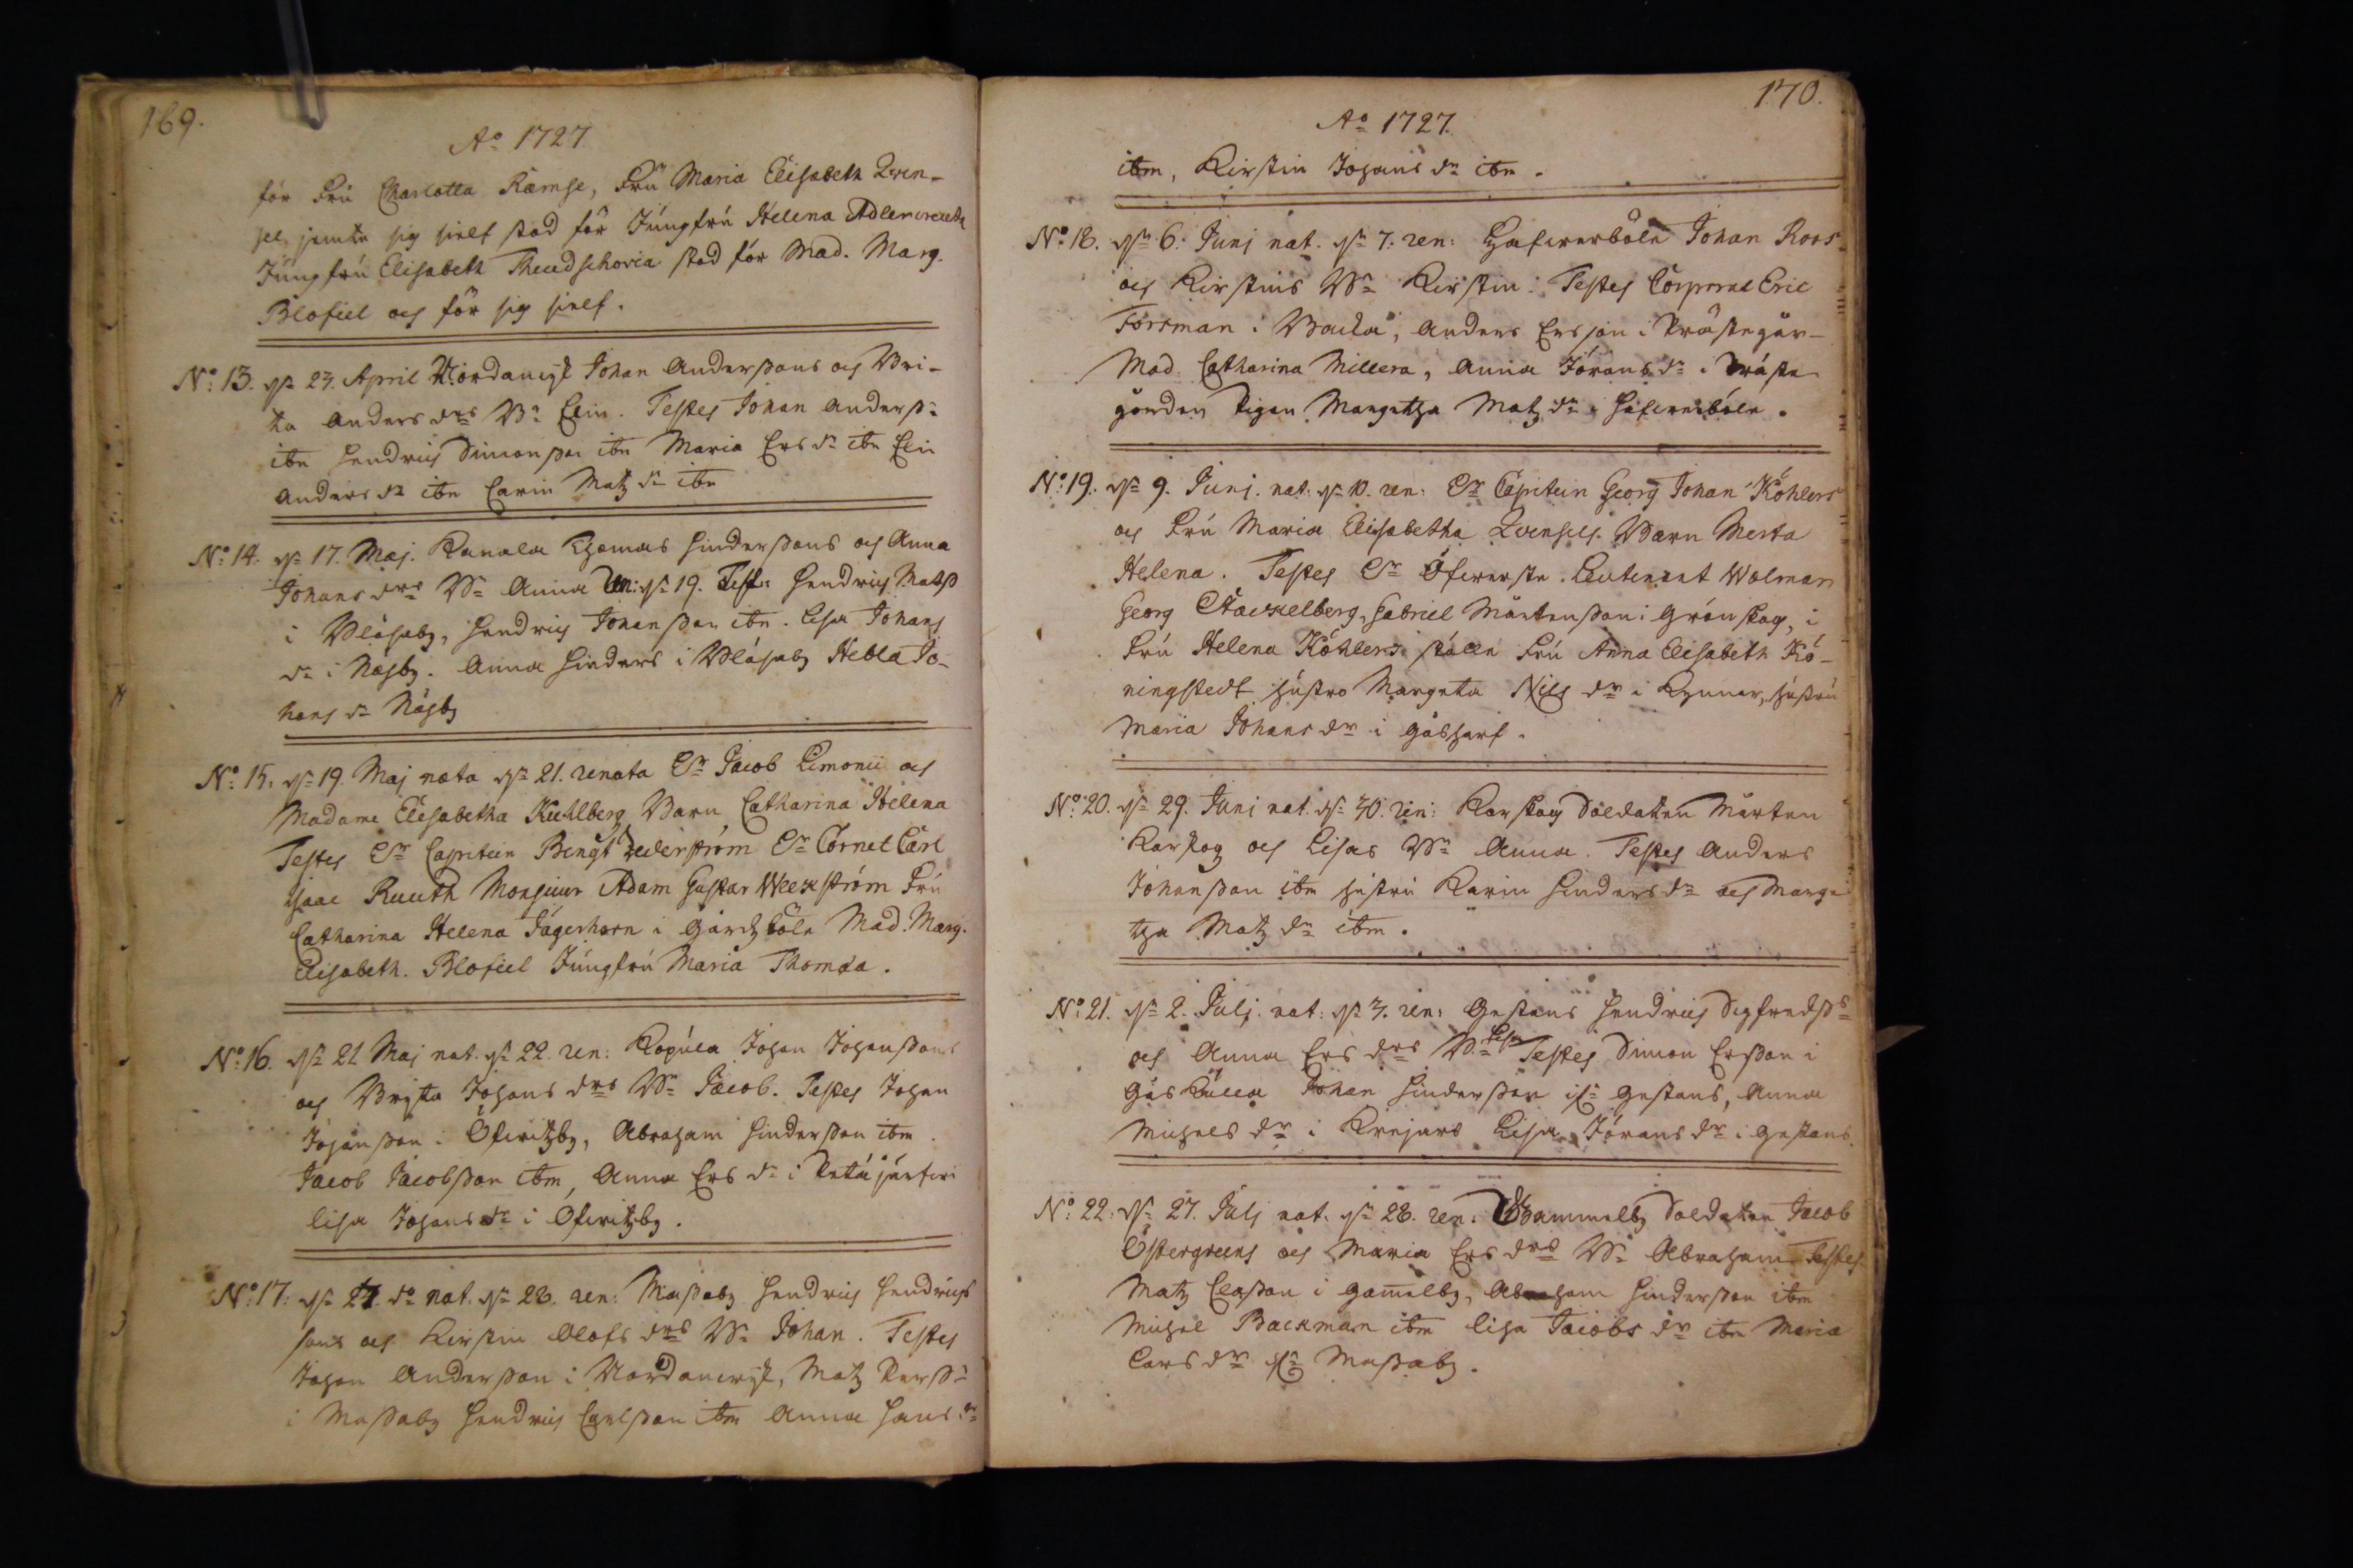 169.
Ao 1727
för Frú Charlotta Ramse, Frú Maria Elisabeth Lven-
sel, jemte sig sielf stod för Jungfrú Helena Adlercreutz
Jungfrú Elisabeth Theudschovia stod för Mad. Marg.
Blofiel och för sig sielf.
No: 13. dn 23. April Nordanvijk Johan Anderssons och Bri-
ta Anders drs Bn Elin. Testes Johan Anderss:
ibm Hendrich Simonsson ibm Maria Ers dr ibm Elin
Anders dr ibm Carin Matz dr ibm
No: 14. dn 17. Maj. Kanala Thomas Hinderssons och Anna
Johans drs Bn Anna ren: dn 19. Test: Hendrich Matss
i Blåsaby, Hendrich Johansson ibm. Lisa Johans
dr i Näsby. Anna Hinders i Blåsaby Hebla Jo-
hans dr Näsby
No: 15. dn 19. Maj nata dn 21. renata Hr Jacob Limonii och
Madame Elisabetha Kuhlberg Barn Catharina Helena
Testes Hr Capitein Bengt Cederström Hr Cornet Carl
Isaac Ruuth Monsieur Adam Gustav Weckström Frú
Catharina Helena Jägerhorn i Gårdzböle Mad. Marg.
Elisabeth. Blofiel Jungfrú Maria Thomæa.
No: 16. dn 21 Maj nat. dn 22. ren: Kopúla Johan Johanssons
och Brijta Johans drs Bn Jacob. Testes Johan
Johansson i Öfwitzby, Abraham Hindersson ibm
Jacob Jacobsson ibm, Anna Ers dr i
Lisa Johans dr i Öfwitzby.
No: 17: dn 27. do nat. dn 28. ren: Massaby Hendrich Hendrichs
sons och Kirstin Olofs drs Bn Johan. Testes
Johan Andersson i Nordanwijk, Matz Perss:
i Massaby Hendrich Carlsson ibm Anna Hans dr
170.
Ao 1727.
ibm, Kirstin Johans dr ibm.
No: 18. dn 6. Junj nat. dn 7. ren: Hafwerböle Johan Roos
och Kirstins Bn Kirstin: Testes Corporal Eric
Forsman i Backa, Anders Ersson i Prästegår-
Mad. Catharina Millera, Anna Jörans dr i Präste
gården Pigan Margetha Matz dr i Hafwerböle.
No: 19. dn 9. Junj. nat. dn 10. ren: Hr Capitein Georg Johan Köhlers
och Frú Maria Elisabetha Lvensels Barn Merta
Helena. Testes Hr Öfwerste Leutenant Wolmar
Georg Stackelberg, Gabriel Mårtensson i Grönskog, i
Frú Helena Köhlers ställe Frú Anna Elisabeth Kö-
ningstedt hústro Margeta Nils dr i Rynnar, hústrú
Maria Johans dr i Gåsharf.
No: 20. dn 29. Junj nat. dn 30. ren: Karskog Soldaten Mårten
Karskog och Lisas Bn Anna. Testes Anders
Johansson ibm hústrú Karin Hinders dr och Marge
tha Matz dr ibm.
No: 21. dn 2. Julj. nat: dn 3. ren: Gestans Hendrich Sigfredss:
och Anna Ers drs Bn Lisa Testes Simon Ersson i
Gåskulla Johan Hindersson i Gestans, Anna
Michels dr i Krejars Lisa Jörans dr i Gestans.
No: 22: dn 27. Julj nat. dn 28. ren: Gammelby Soldaten Jacob
Östergreens och Maria Ers drs Bn Abraham Testes
Matz Classon i Gamelby, Abraham Hindersson ibm
Michel Backman ibm Lisa Jacobs dr ibm Maria
Lars dr Massaby.